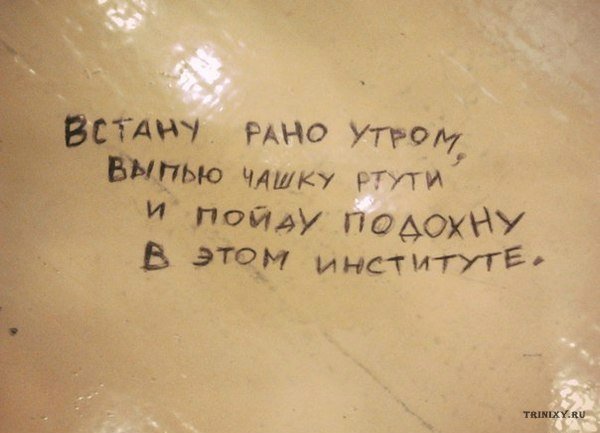 ВСТАНУ РАНО УТРОМ,
ВЫПЬЮ ЧАШКУ РТУТИ
И ПОЙДУ ПОДОХНУ
В ЭТОМ ИНСТИТУТЕ.
TRINIXY.RU